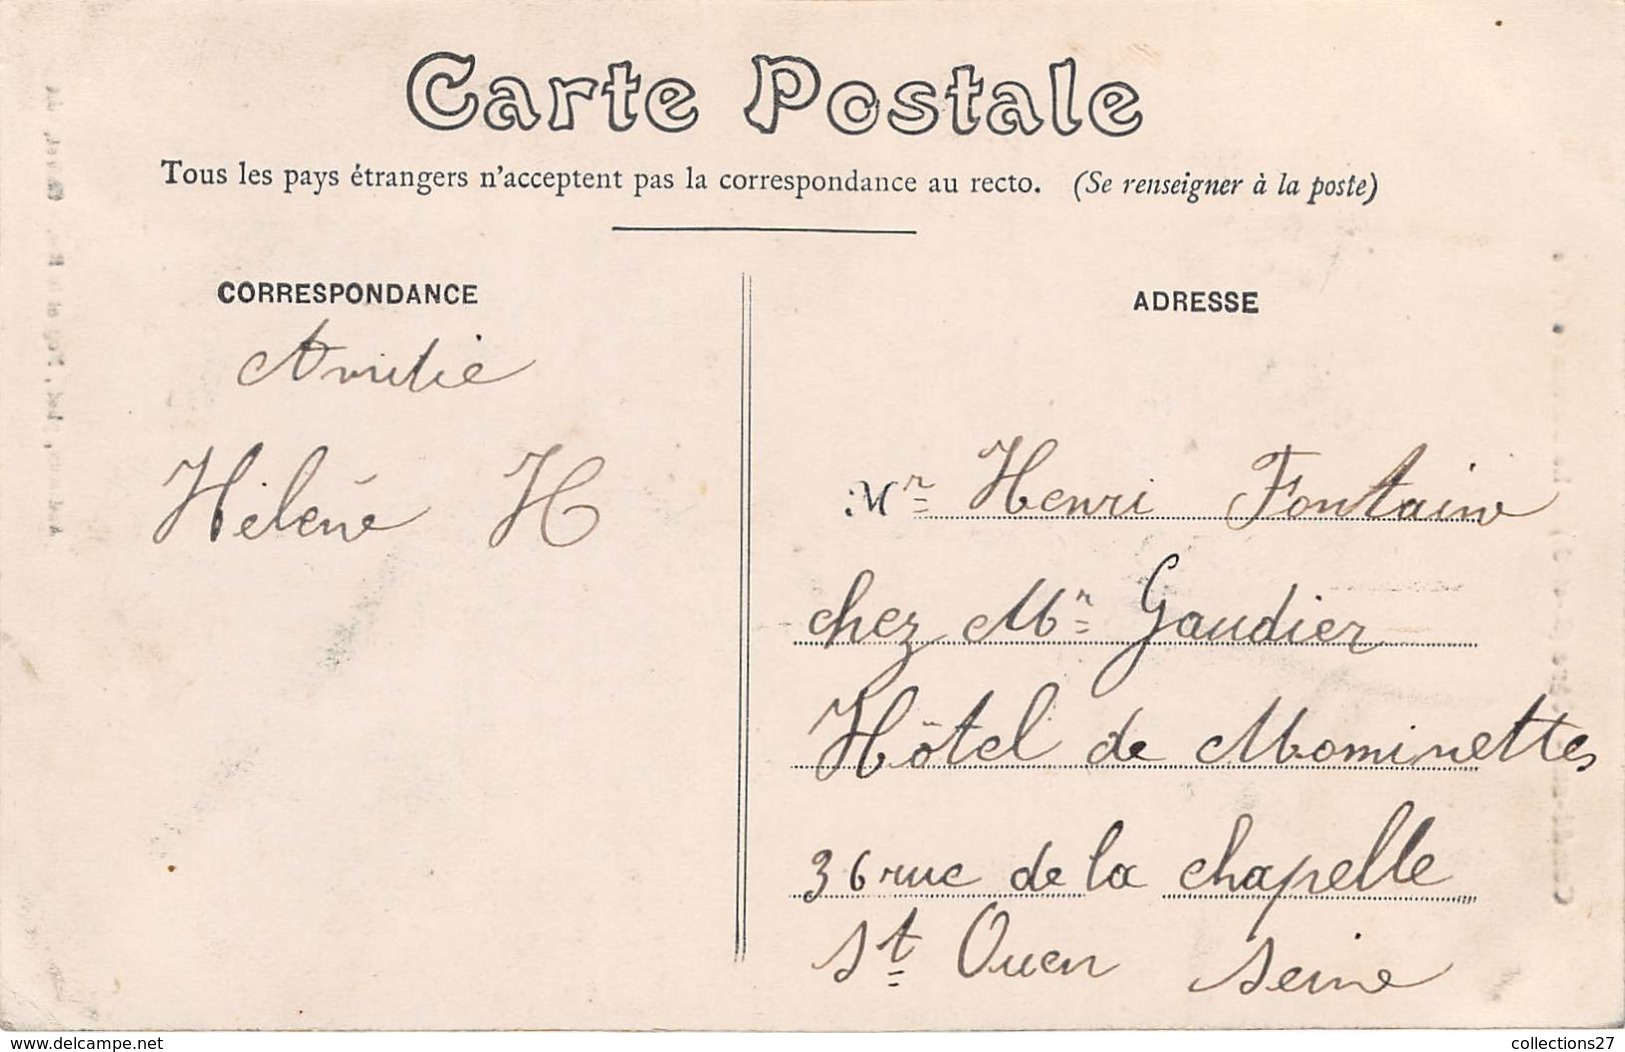 Carte Postale
Tous les pays étrangers n'acceptent pas la correspondance au recto. (Se renseigner à la poste)
CORRESPONDANCE
Amitié
Hélène H
ADRESSE
Mr Henri Fontaine
chez Mr Gaudier
Hôtel de Mominettes
36 rue de la chapelle
St Ouen Seine
delcampe.net
collections27